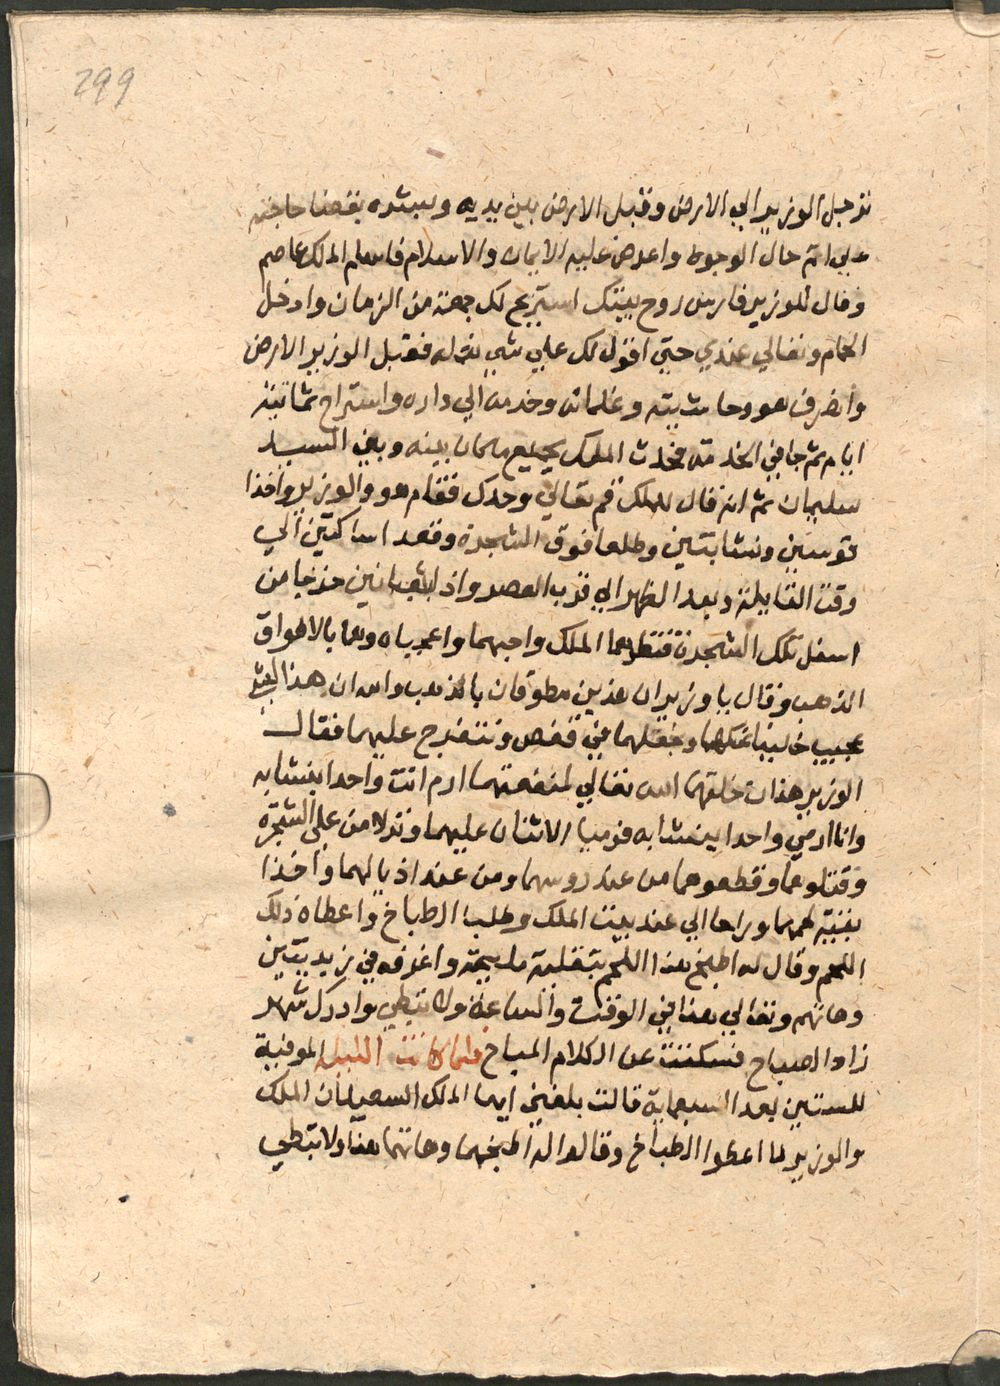 299
ترجل الوزير الي الارض وقبل الارض بين يديه وبشره بقضا حاجته
علي اتم حال الوجوه واعرض عليه الايمان والاسلام فاسلم الملك عاصم
وقال للوزير فارس روح بيتك استريح لك جمعة من الزمان وادخل
الحمام وتعالي عندي حتي اقول لك علي شي فقبل الوزير الارض
وانصرف هو وحاشيته وغلمانه وخدمه الي داره واستراح ثمانية
ايام ثم جا في الخدمة فحدث الملك بجميع ما كان بينه وبين السيد
سليمان ثم انه قال للملك قم تعالي وحدك فقام هو والوزير واخذا
قوسين ونشابتين وطلعا فوق الشجرة وقعد اساكتين الي
وقت القايلة وبعد الظهر الي قرب العصر واذا بثعبانين خرجا من
اسفل تلك الشجرة فنظرهما الملك واحبهما واعجباه وهما بالاطواق
الذهب وقال يا وزير ان هذين مطوقان بالذهب والله ان هذا الشي
عجيب خلينا نمسكهما ونجعلهما في قفص ونتفرج عليهما فقال
الوزير هذان خلقهما الله تعالي لمنفعتهما ارم انت واحدا بنشابه
وانا ارمي واحدا بنشابه فرميا الاثنان عليهما ونزلا من علي الشجرة
وقتلوهما وقطعوهما من عند روسهما ومن عند اذيالهما واخذا
بقية لحمهما وراحا الي عند بيت الملك وطلب الطباخ واعطاه ذلك
اللحم وقال له اطبخ هذا اللحم بتقلية مليحة واغرفه في زبديتين
وهاتهم وتعالي هنا في الوقت والساعة ولا تبطي وادرك شهر
زاد الصباح فسكتت عن الكلام المباح فلما كانت الليلة الموفية
للستين بعد السبعماية قالت بلغني ايها الملك السعيد ان الملك
والوزير لما اعطوا الطباخ وقالوا له اطبخهما وهاتهما هنا ولا تبطي